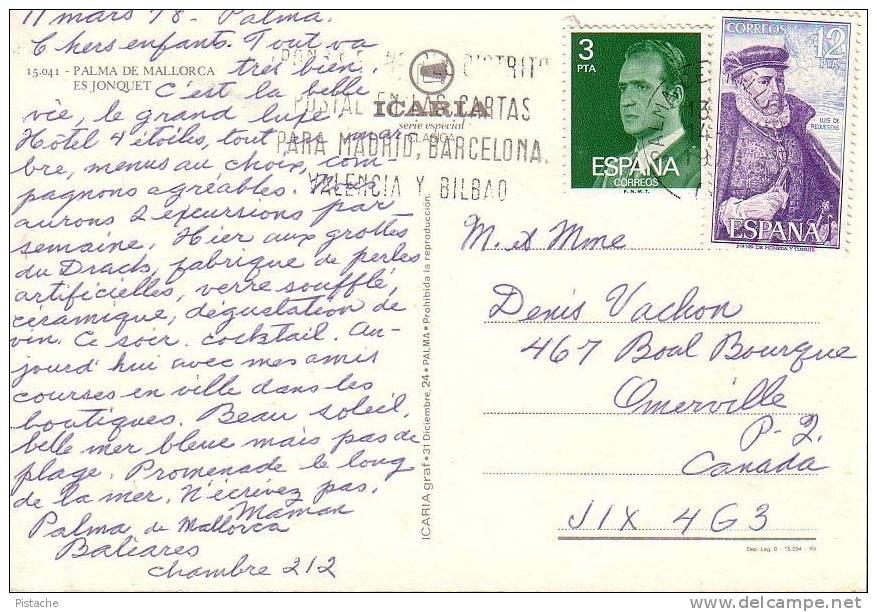 11 mars 78 - Palma.
Chers enfants. Tout va
très bien.
15.041 - PALMA DE MALLORCA
ES JONQUET
C'est la belle
vie, le grand luxe
Hôtel 4 étoiles, tout
bre, menus au choix, com
pagnons agréables. Nous
aurons 2 excursions par
semaine. Hier aux grottes
du Drach, fabrique de perles
artificielles, verre soufflé,
céramique, dégustation de
vin. Ce soir. cocktail. Au-
jourd'hui avec mes amis
courses en ville dans les
boutiques. Beau soleil,
belle mer bleue mais pas de
plage. Promenade le long
de la mer. N'écrivez pas.
Maman
Palma de Mallorca
Baléares
chambre 212
ICARIA
serie especial
CLASICA
DISTRITO
POSTAL EN LAS CARTAS
PARA MADRID, BARCELONA,
VALENCIA Y BILBAO
ICARIA graf • 31 Diciembre, 24 • PALMA • Prohibida la reproducción.
3
PTA
ESPAÑA
CORREOS
F. N. M. T.
CORREOS 12
PTA
LUIS DE
REQUESENS
ESPAÑA
M. et Mme
Denis Vachon
467 Boal Bourque
Omerville
P-Q.
Canada
J1X 4G3
Dep. Leg. B - 15.094 - XV
Pistache
http://www.delcampe.net